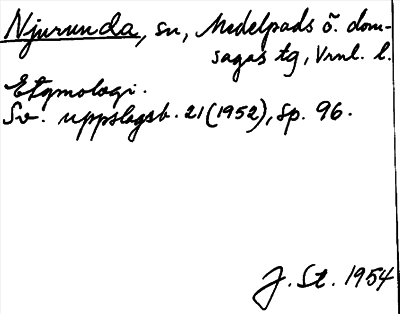 Njurunda, sn, Medelpads ö. dom-
sagas tg, Vrnl. l.
Etymologi.
Sv. uppslagsb. 21 (1952), sp. 96.
J. St. 1954